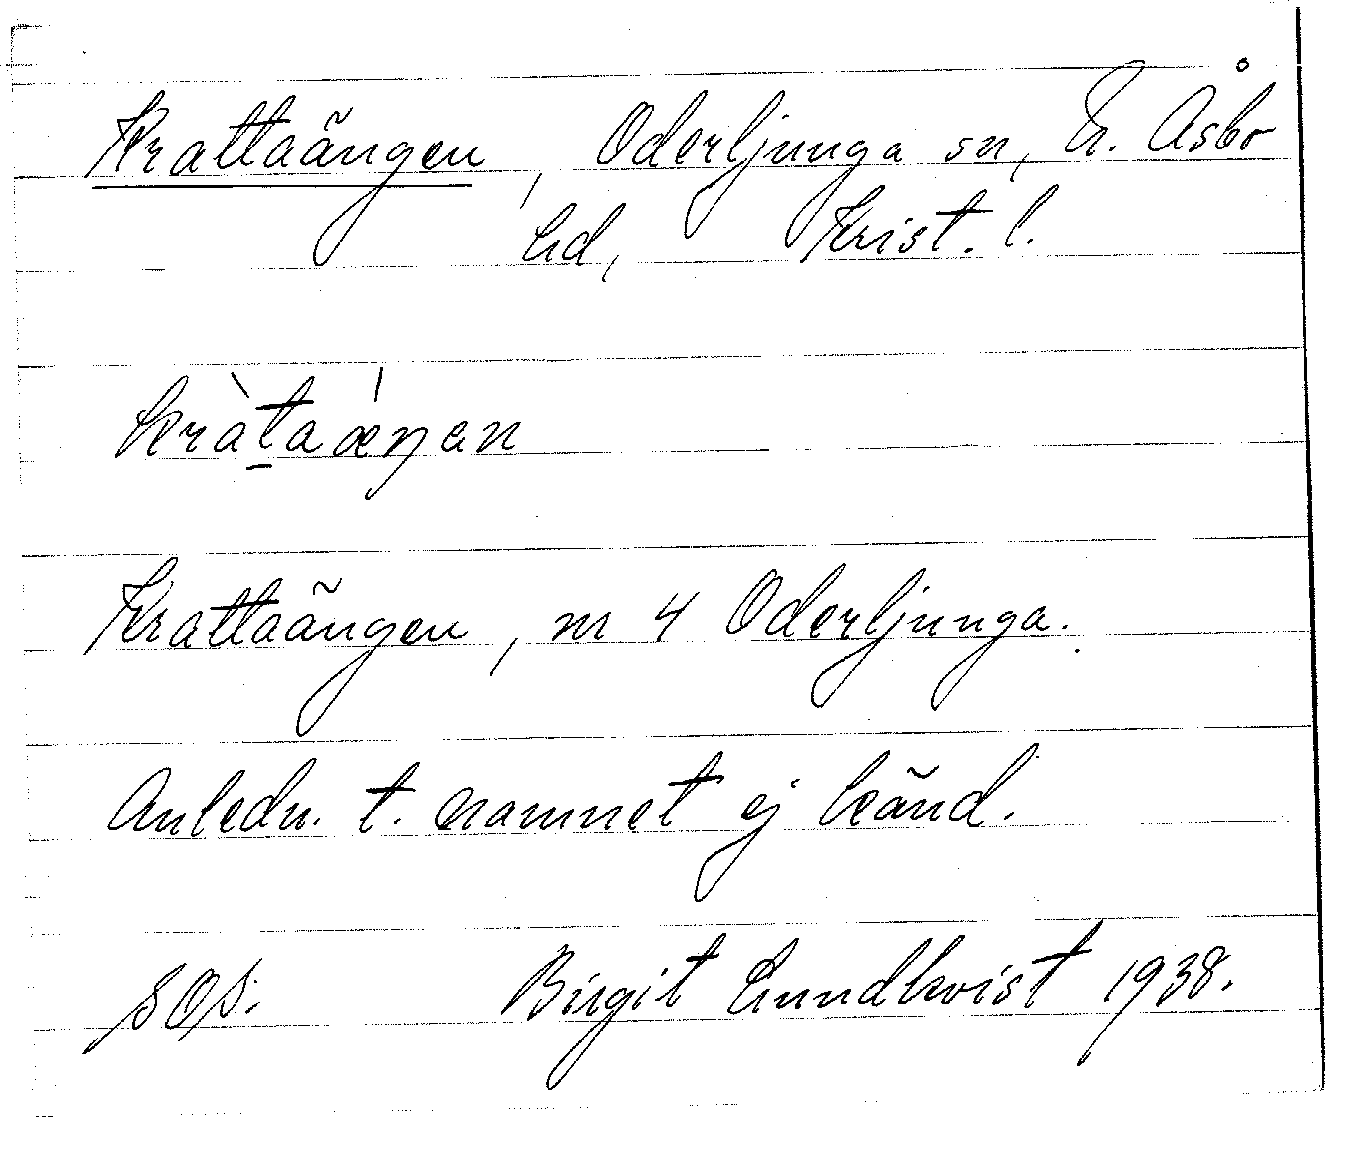 Krattaängen, Oderljunga sn, N. Åsbo
hd, Krist. l.
kràtaæŋen
Krattaängen, nr 4 Oderljunga.
Anledn. t. namnet ej känd.
SOS. Birgit Lundkvist 1938.